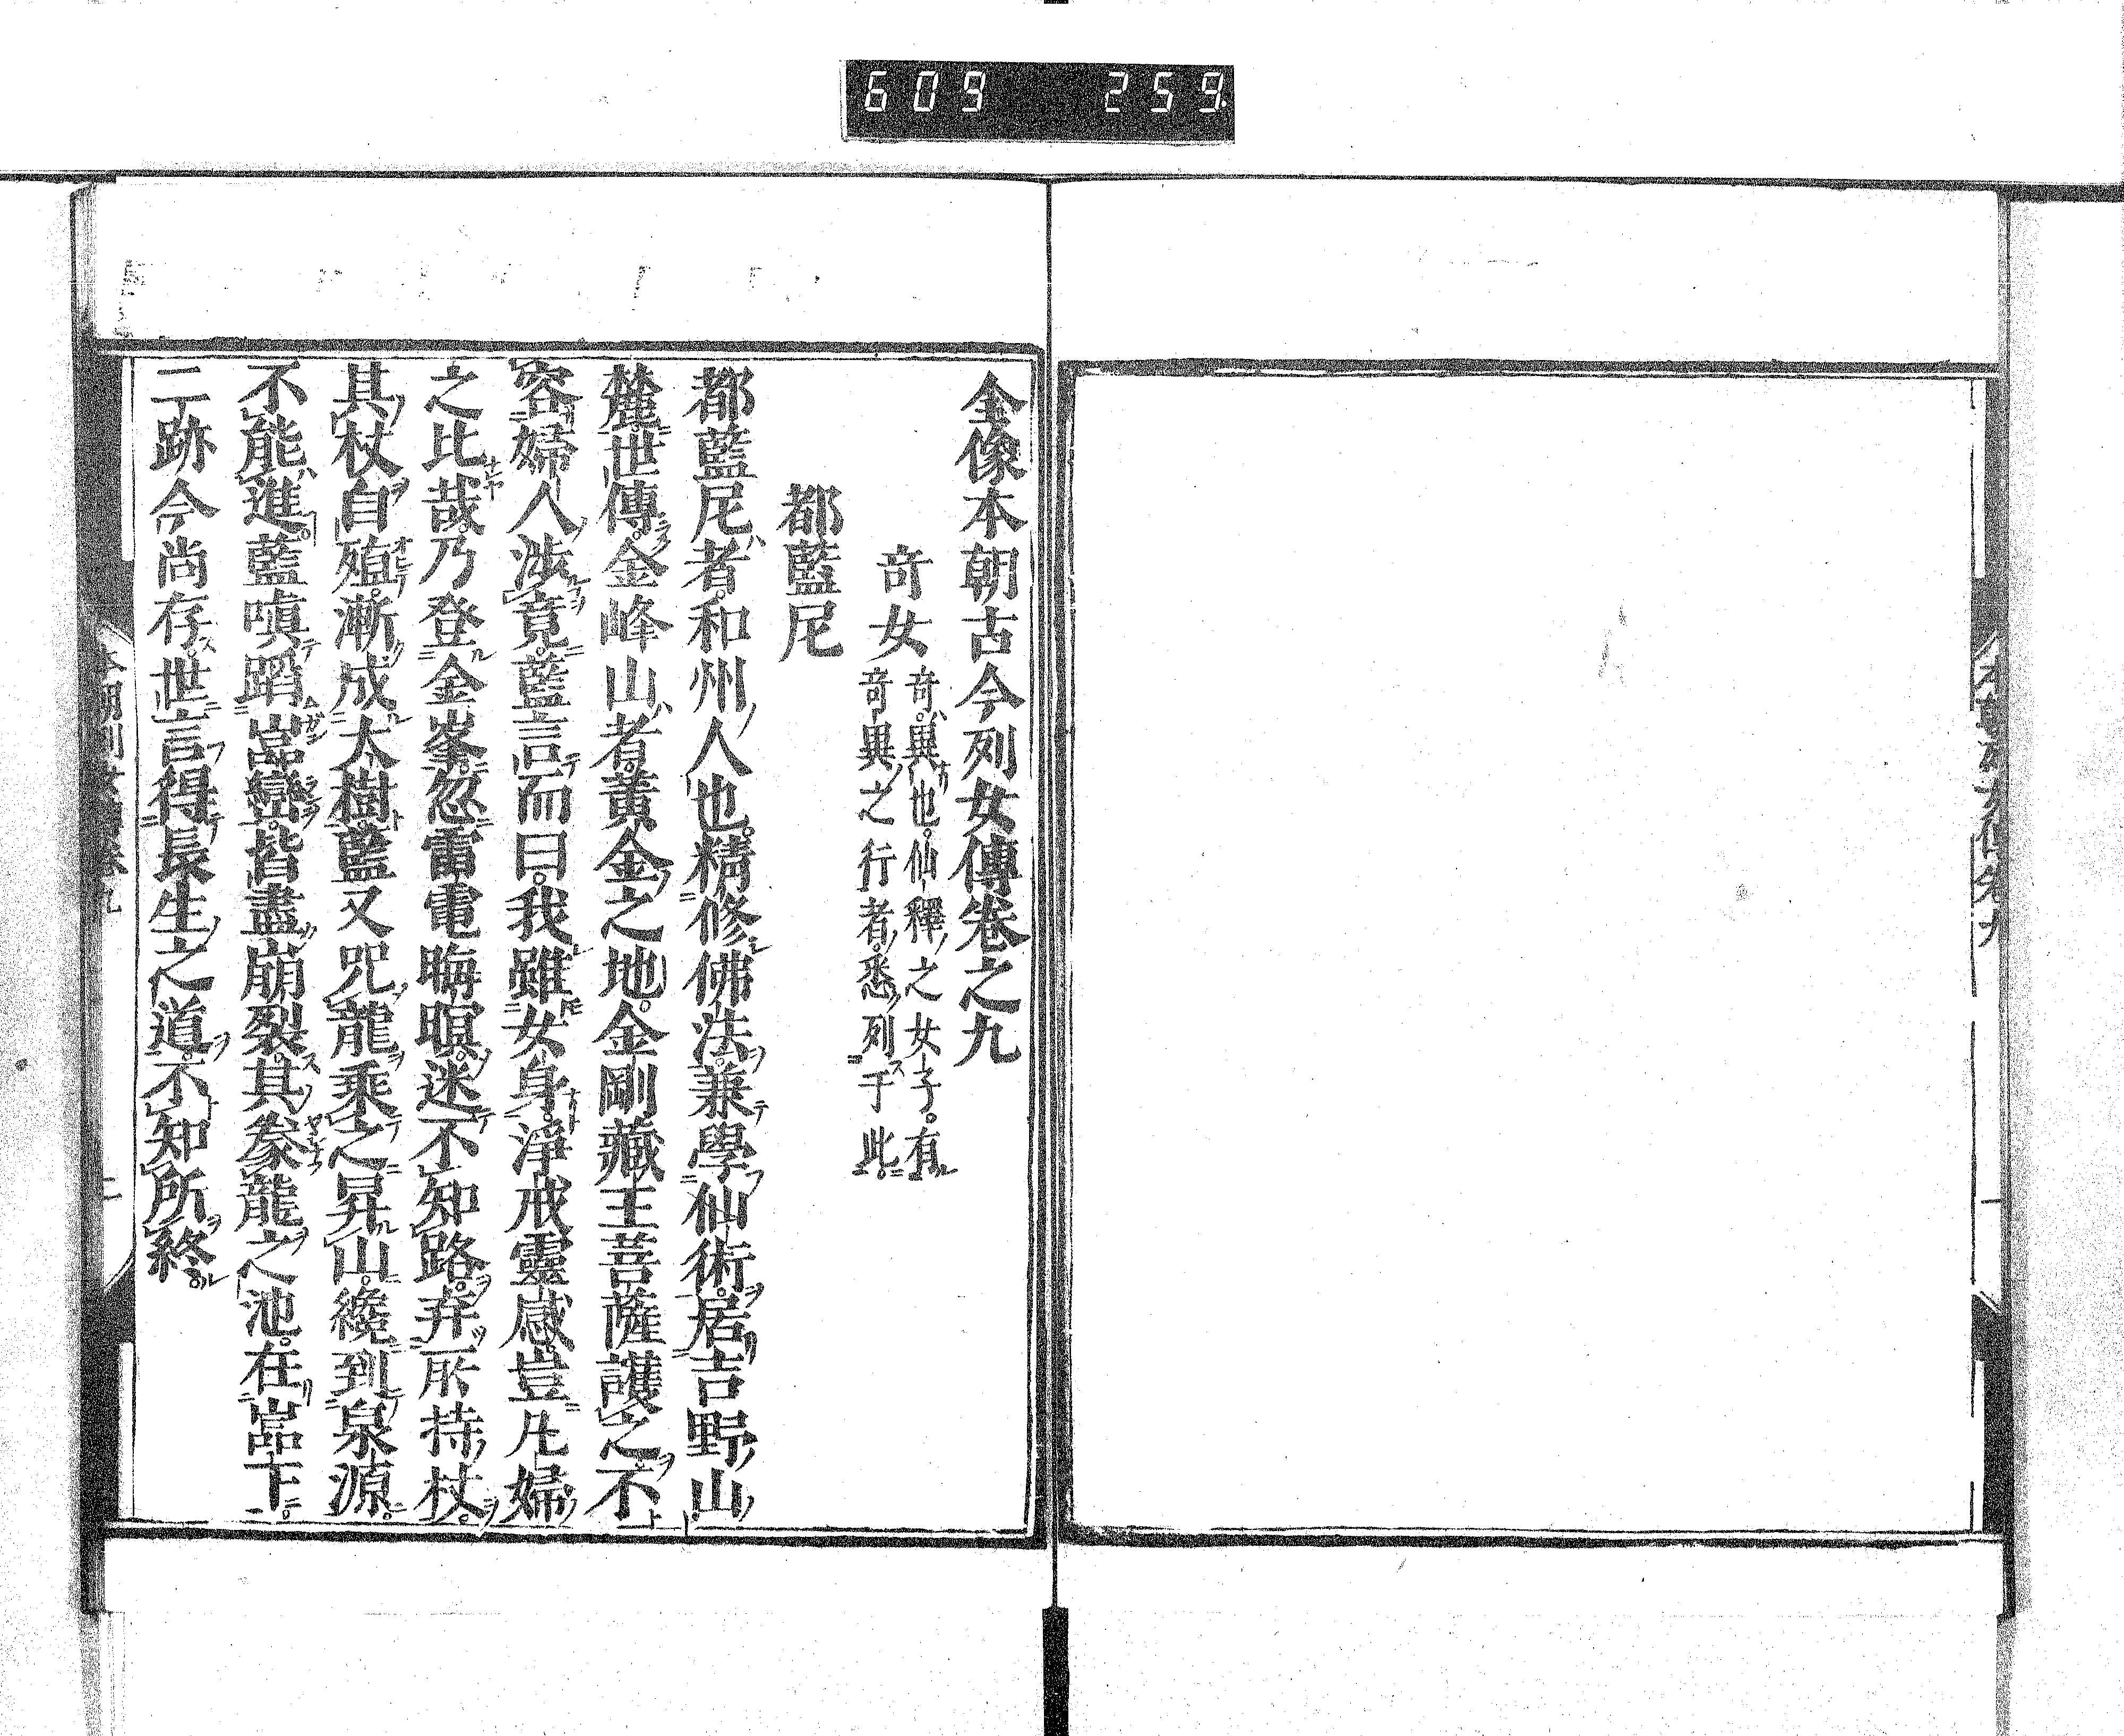 609 259
全像本朝古今列女傳卷之九
奇女
奇異也仙釋之女子有
奇異之行者悉列于此
都藍尼
都藍尼者和州人也精修佛法兼學仙術居吉野山
麓世傳金峰山者黃金之地金剛藏王菩薩護之不
容婦人渉竟藍言而曰我雖女身淨戒靈感豈凡婦
之比哉乃登金峯忽雷電晦暝迷不知路弃所持杖
其杖自殖漸成大樹藍又咒龍乘之昇山纔到泉源
不能進藍嗔蹈嵓巒皆盡崩裂其豢龍之池在嵓下
二跡今尚存世言得長生之道不知所終